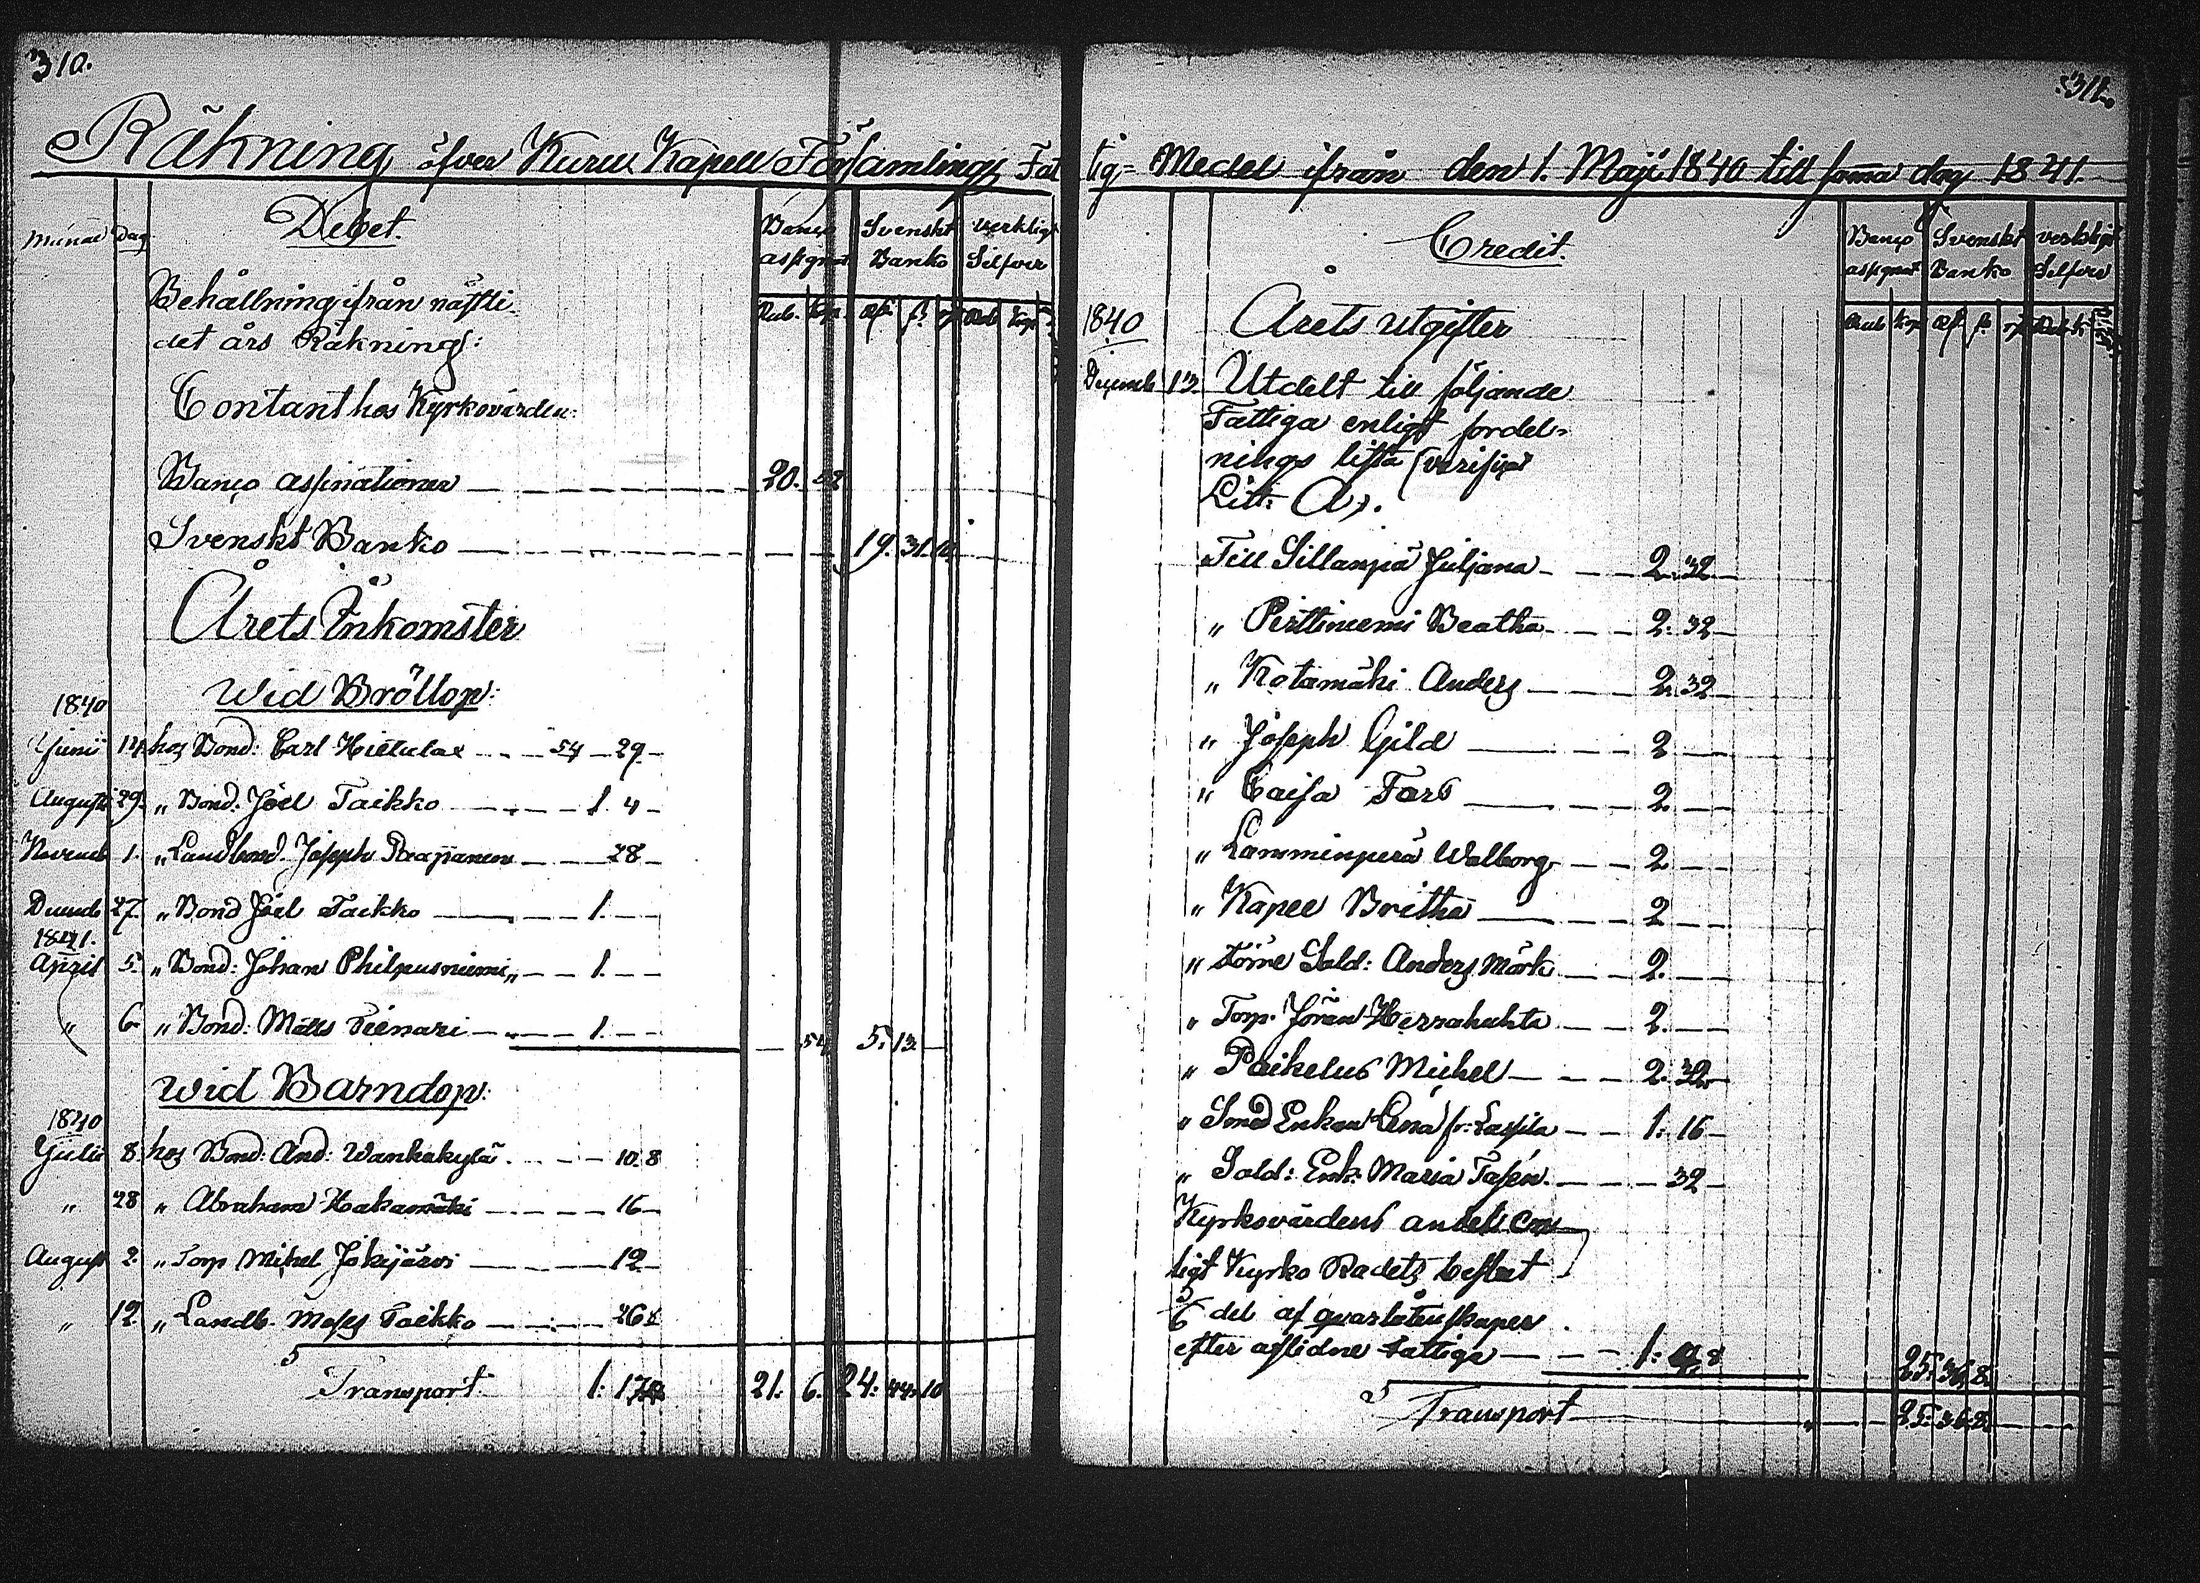 310.
Räkning öfver Kuru Kapell Församlings Fat
Månad Dag
Debet.
Banco assignat
Svenskt Banko
Verkligt Silfver
Rub. Kop. rf. ß. rf Rub. Kop.
Behållning ifrån nästli-
det års Räkning:
Contant hos Kyrkovärden:
Banco assinationer 20. 52
Svenskt Banko 19. 31. 10
Årets Inkomster
Wid Bröllop:
1840
Junii 14. hos Bond: Carl Hietulax 54 29
Augusti 29. „ Bond. Joel Taikko 1. 4
Novemb 1. „ Landbond. Joseph 28
Decemb 27. „ Bond Joel Taikko 1.
1841.
April 5. „ Bond: Johan Philpusniemi 1.
„ 6. „ Bond: Matts 1. 54 5. 13
Wid Barndop:
1840
Julii 8. hos Bond: And: Wankakylä 10. 8
„ 28 „ Abraham Hakamäki 16
August 2. „ Torp Mihel Jokijärvi 12
„ 12. „ Landb. Moses Taikko 26
Transport 1. 17 21. 6. 24. 44. 10
311.
tig- Medel ifrån den 1. Maji 1840 till samma dag 1841.
Credit.
Banco assignat
Svenskt Banko
verkligt Silfver
Rub Kop rf. ß. rf Rub. K.
1840 Årets utgifter
Decemb 13. Utdelt till följande
Fattiga enligt fördel-
nings lista (verific
Litt: A).
Till Sillanpä Juljana 2. 32
„ Perttiniemi Beatha 2. 32
„ Kotamäki Anders 2. 32
„ Joseph Gild 2
„ Caisa Fars 2.
„ Lamminperä Walborg 2
„ Kapee Britha 2
„ Sold: Anders Mörk 2.
„ Torp. Jöran 2.
„ Paikelus Michel 2. 32
„ Enkan Lena fr: Lassila 1. 16
„ Sold: Enk: Maria 32
Kyrkovärdens andel en-
ligt Kyrko Rådets beslut
del af qvarlåtenskapen
efter aflidne fattiga 1. 4. 8 25. 36. 8.
Transport 25. 36. 8